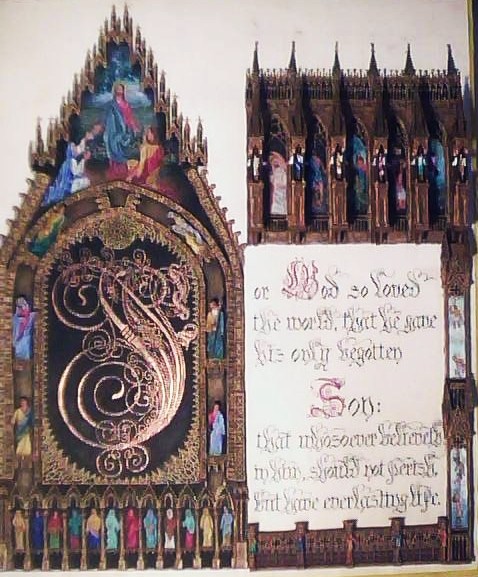 F
or God so loved
the world, that he gave
his only begotten
Son:
that whosoever believeth
in him, should not perish,
but have everlasting life.